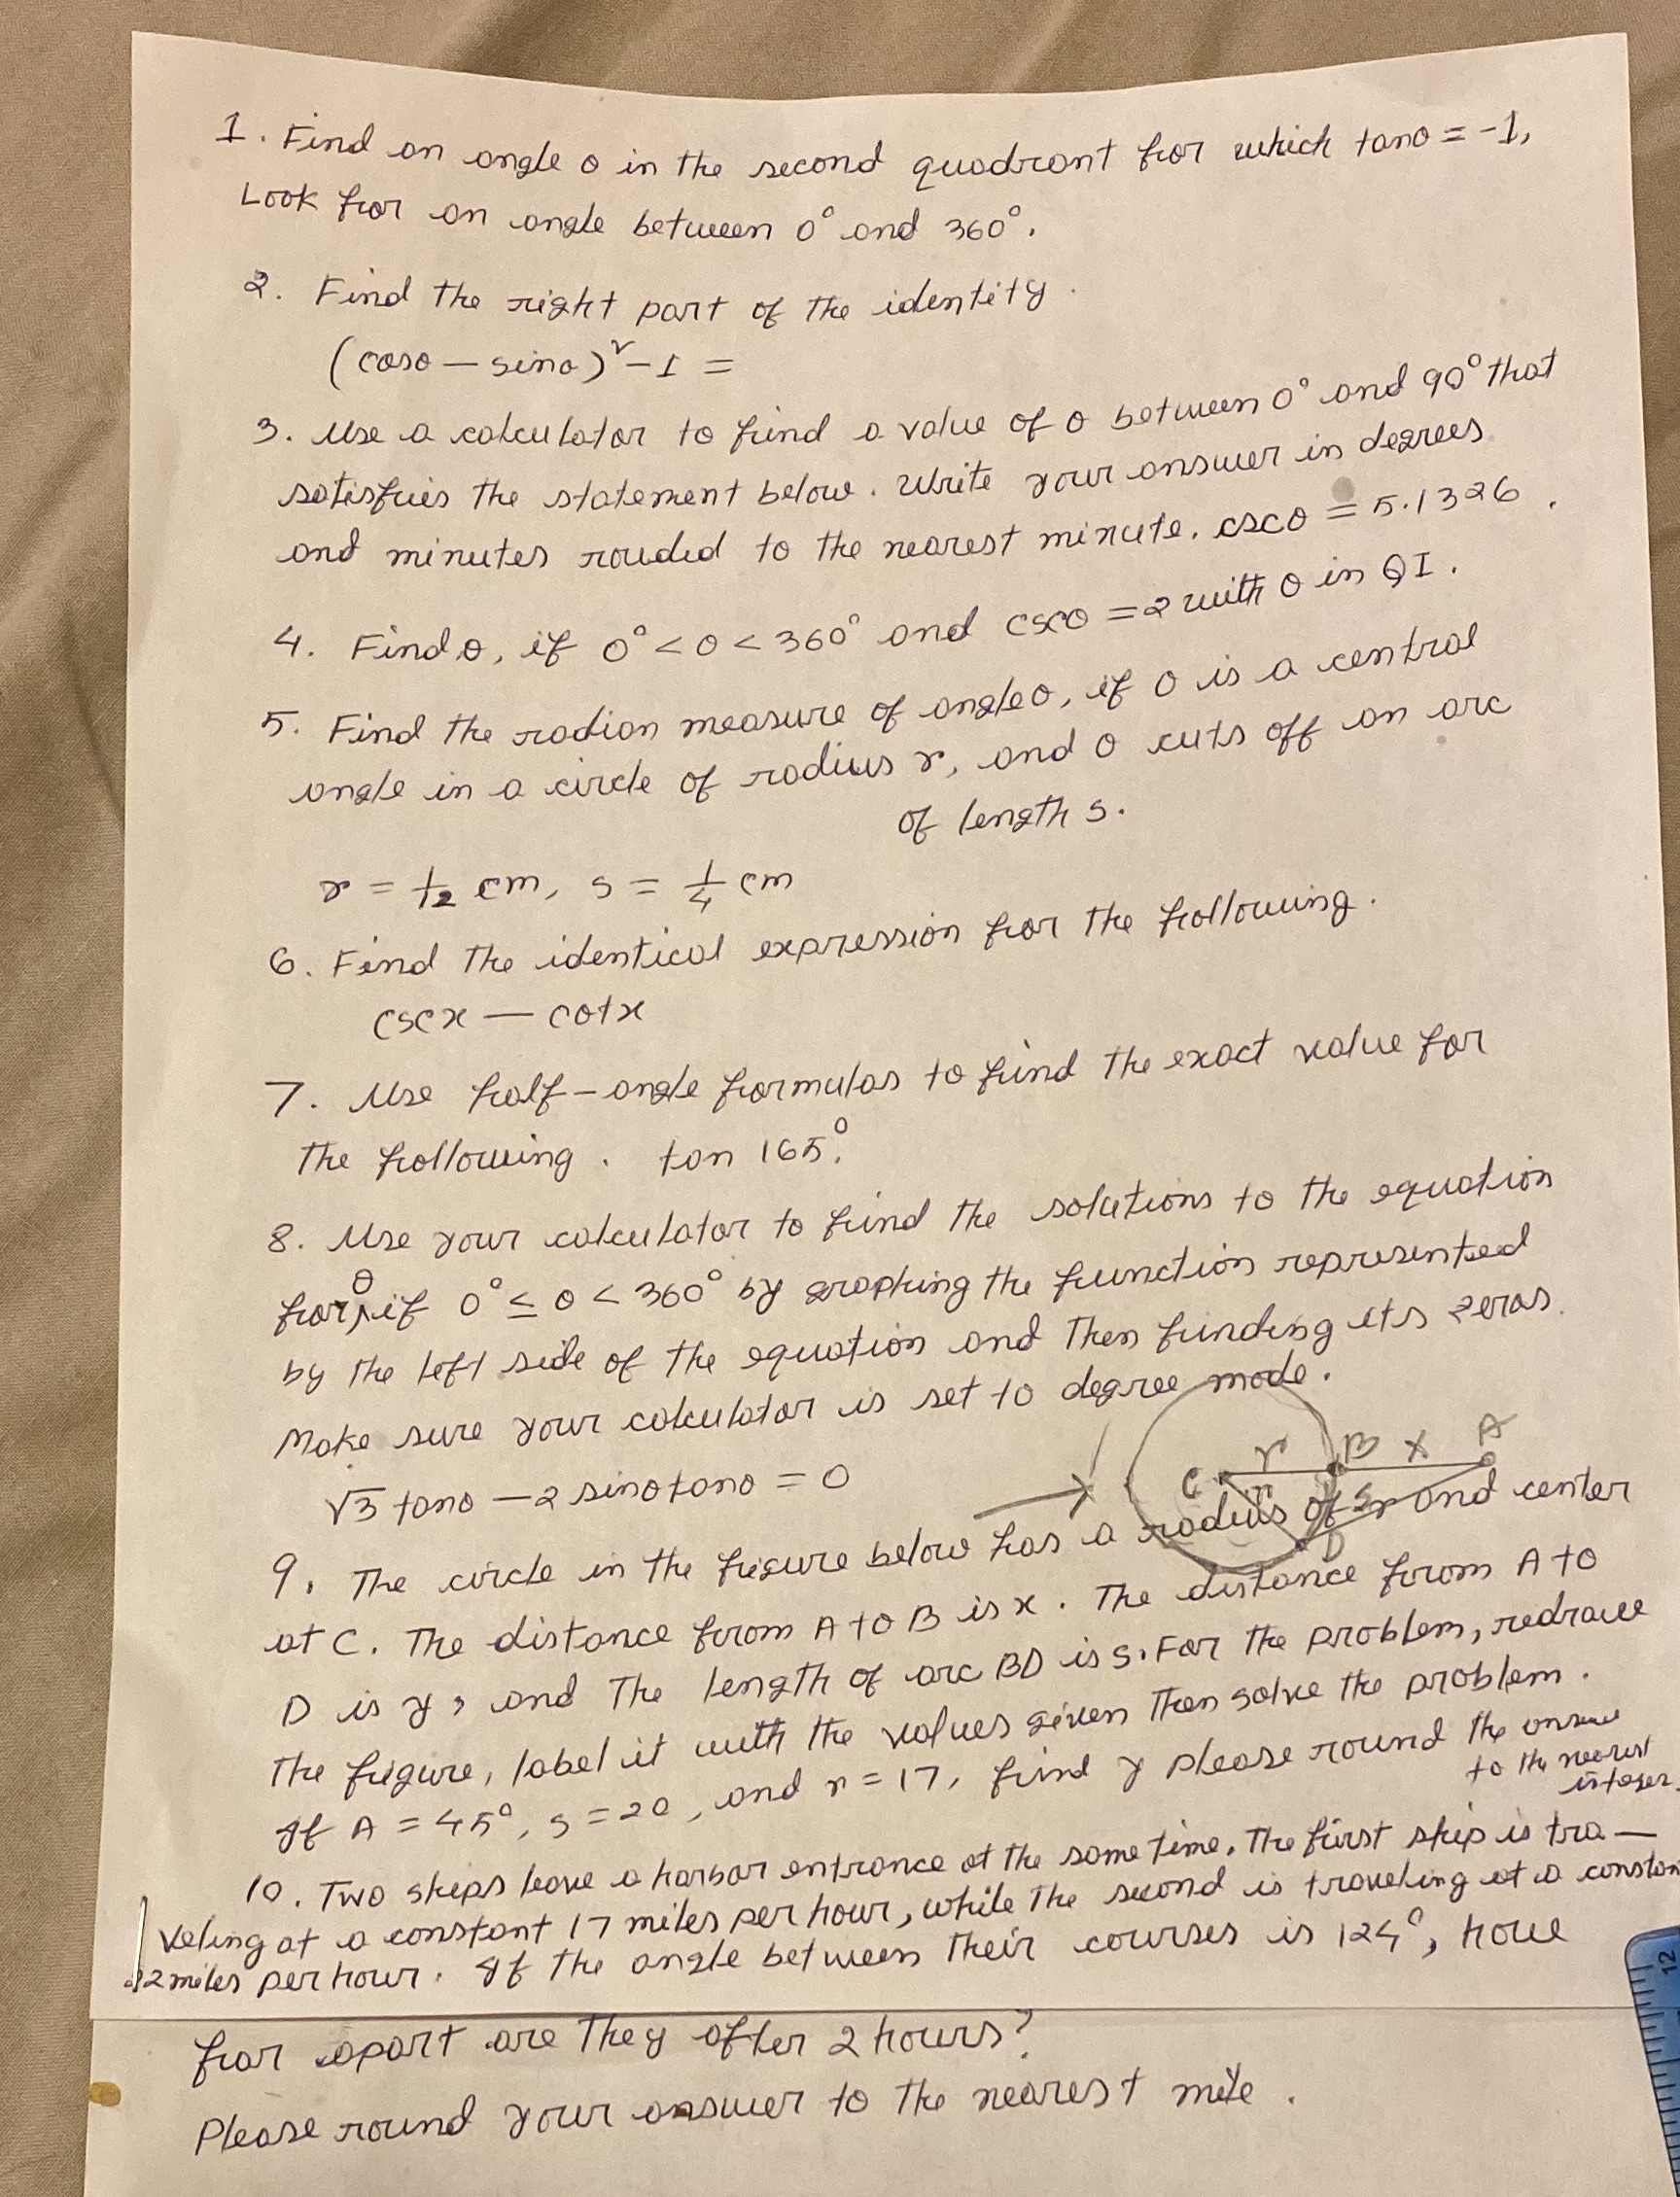 1. Find an angle θ in the second quadrant for which tanθ = -1,
Look for an angle between 0° and 360°.
2. Find the right part of the identity.
(cosθ — sinθ)² - 1 =
3. Use a calculator to find a value of θ between 0° and 90° that
satisfies the statement below. Write your answer in degrees
and minutes rouded to the nearest minute. cscθ = 5.1326.
4. Find θ, if 0° < θ < 360° and cscθ = 2 with θ in QI.
5. Find the radian measure of angle θ, if θ is a central
angle in a circle of radius r, and θ cuts off an arc
of length s.
r = 1/2 cm, s = 1/4 cm
6. Find the identical expression for the following.
cscx — cotx
7. Use half-angle formulas to find the exact value for
the following. tan 165°.
8. Use your calculator to find the solutions to the equation
for θ, if 0° ≤ θ < 360° by graphing the function represented
by the left side of the equation and then finding its zeros.
Make sure your calculator is set to degree mode.
√3 tanθ — 2 sinθ tanθ = 0
C r B x A
r s D
9. The circle in the figure below has a radius of r and center
at C. The distance from A to B is x. The distance from A to
D is y, and the length of arc BD is s. For the problem, redraw
the figure, label it with the values given then solve the problem.
If A = 45°, s = 20, and r = 17, find y please round the answer
to the nearest
integer.
10. Two ships leave a harbor entrance at the same time. The first ship is tra—
veling at a constant 17 miles per hour, while the second is traveling at a constant
22 miles per hour. If the angle between their courses is 124°, how
far apart are they after 2 hours?
Please round your answer to the nearest mile.
12